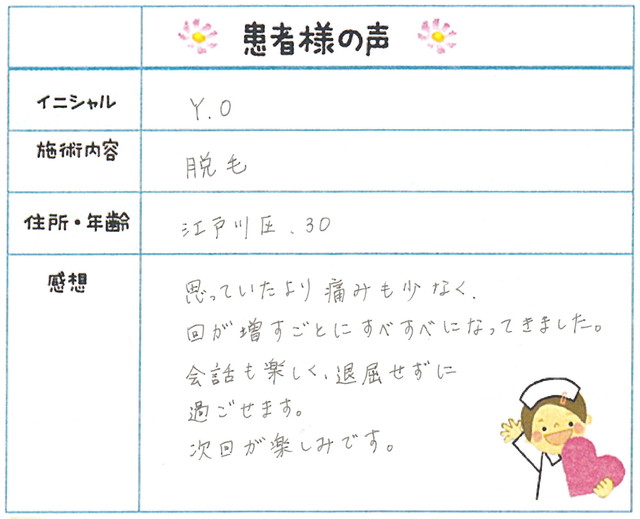 患者様の声
イニシャル Y.O
施術内容 脱毛
住所・年齢 江戸川区、30
感想 思っていたより痛みも少なく、
回が増すごとにすべすべになってきました。
会話も楽しく、退屈せずに
過ごせます。
次回が楽しみです。